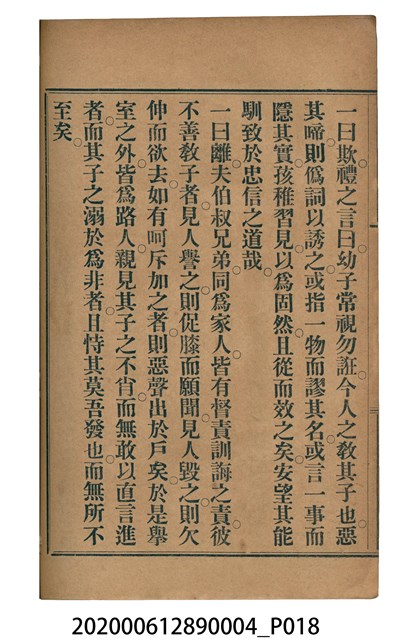 一曰欺禮之言曰幼子常視勿誑今人之教其子也惡
其啼則僞詞以誘之或指一物而謬其名或言一事而
隱其實孩稚習見以爲固然且從而效之矣安望其能
馴致於忠信之道哉
一曰離夫伯叔兄弟同爲家人皆有督責訓誨之責彼
不善教子者見人譽之則促膝而願聞見人毀之則欠
伸而欲去如有呵斥加之者則惡聲出於戶矣於是舉
室之外皆爲路人親見其子之不肖而無敢以直言進
者而其子之溺於爲非者且恃其莫吾發也而無所不
至矣
202000612890004_P018